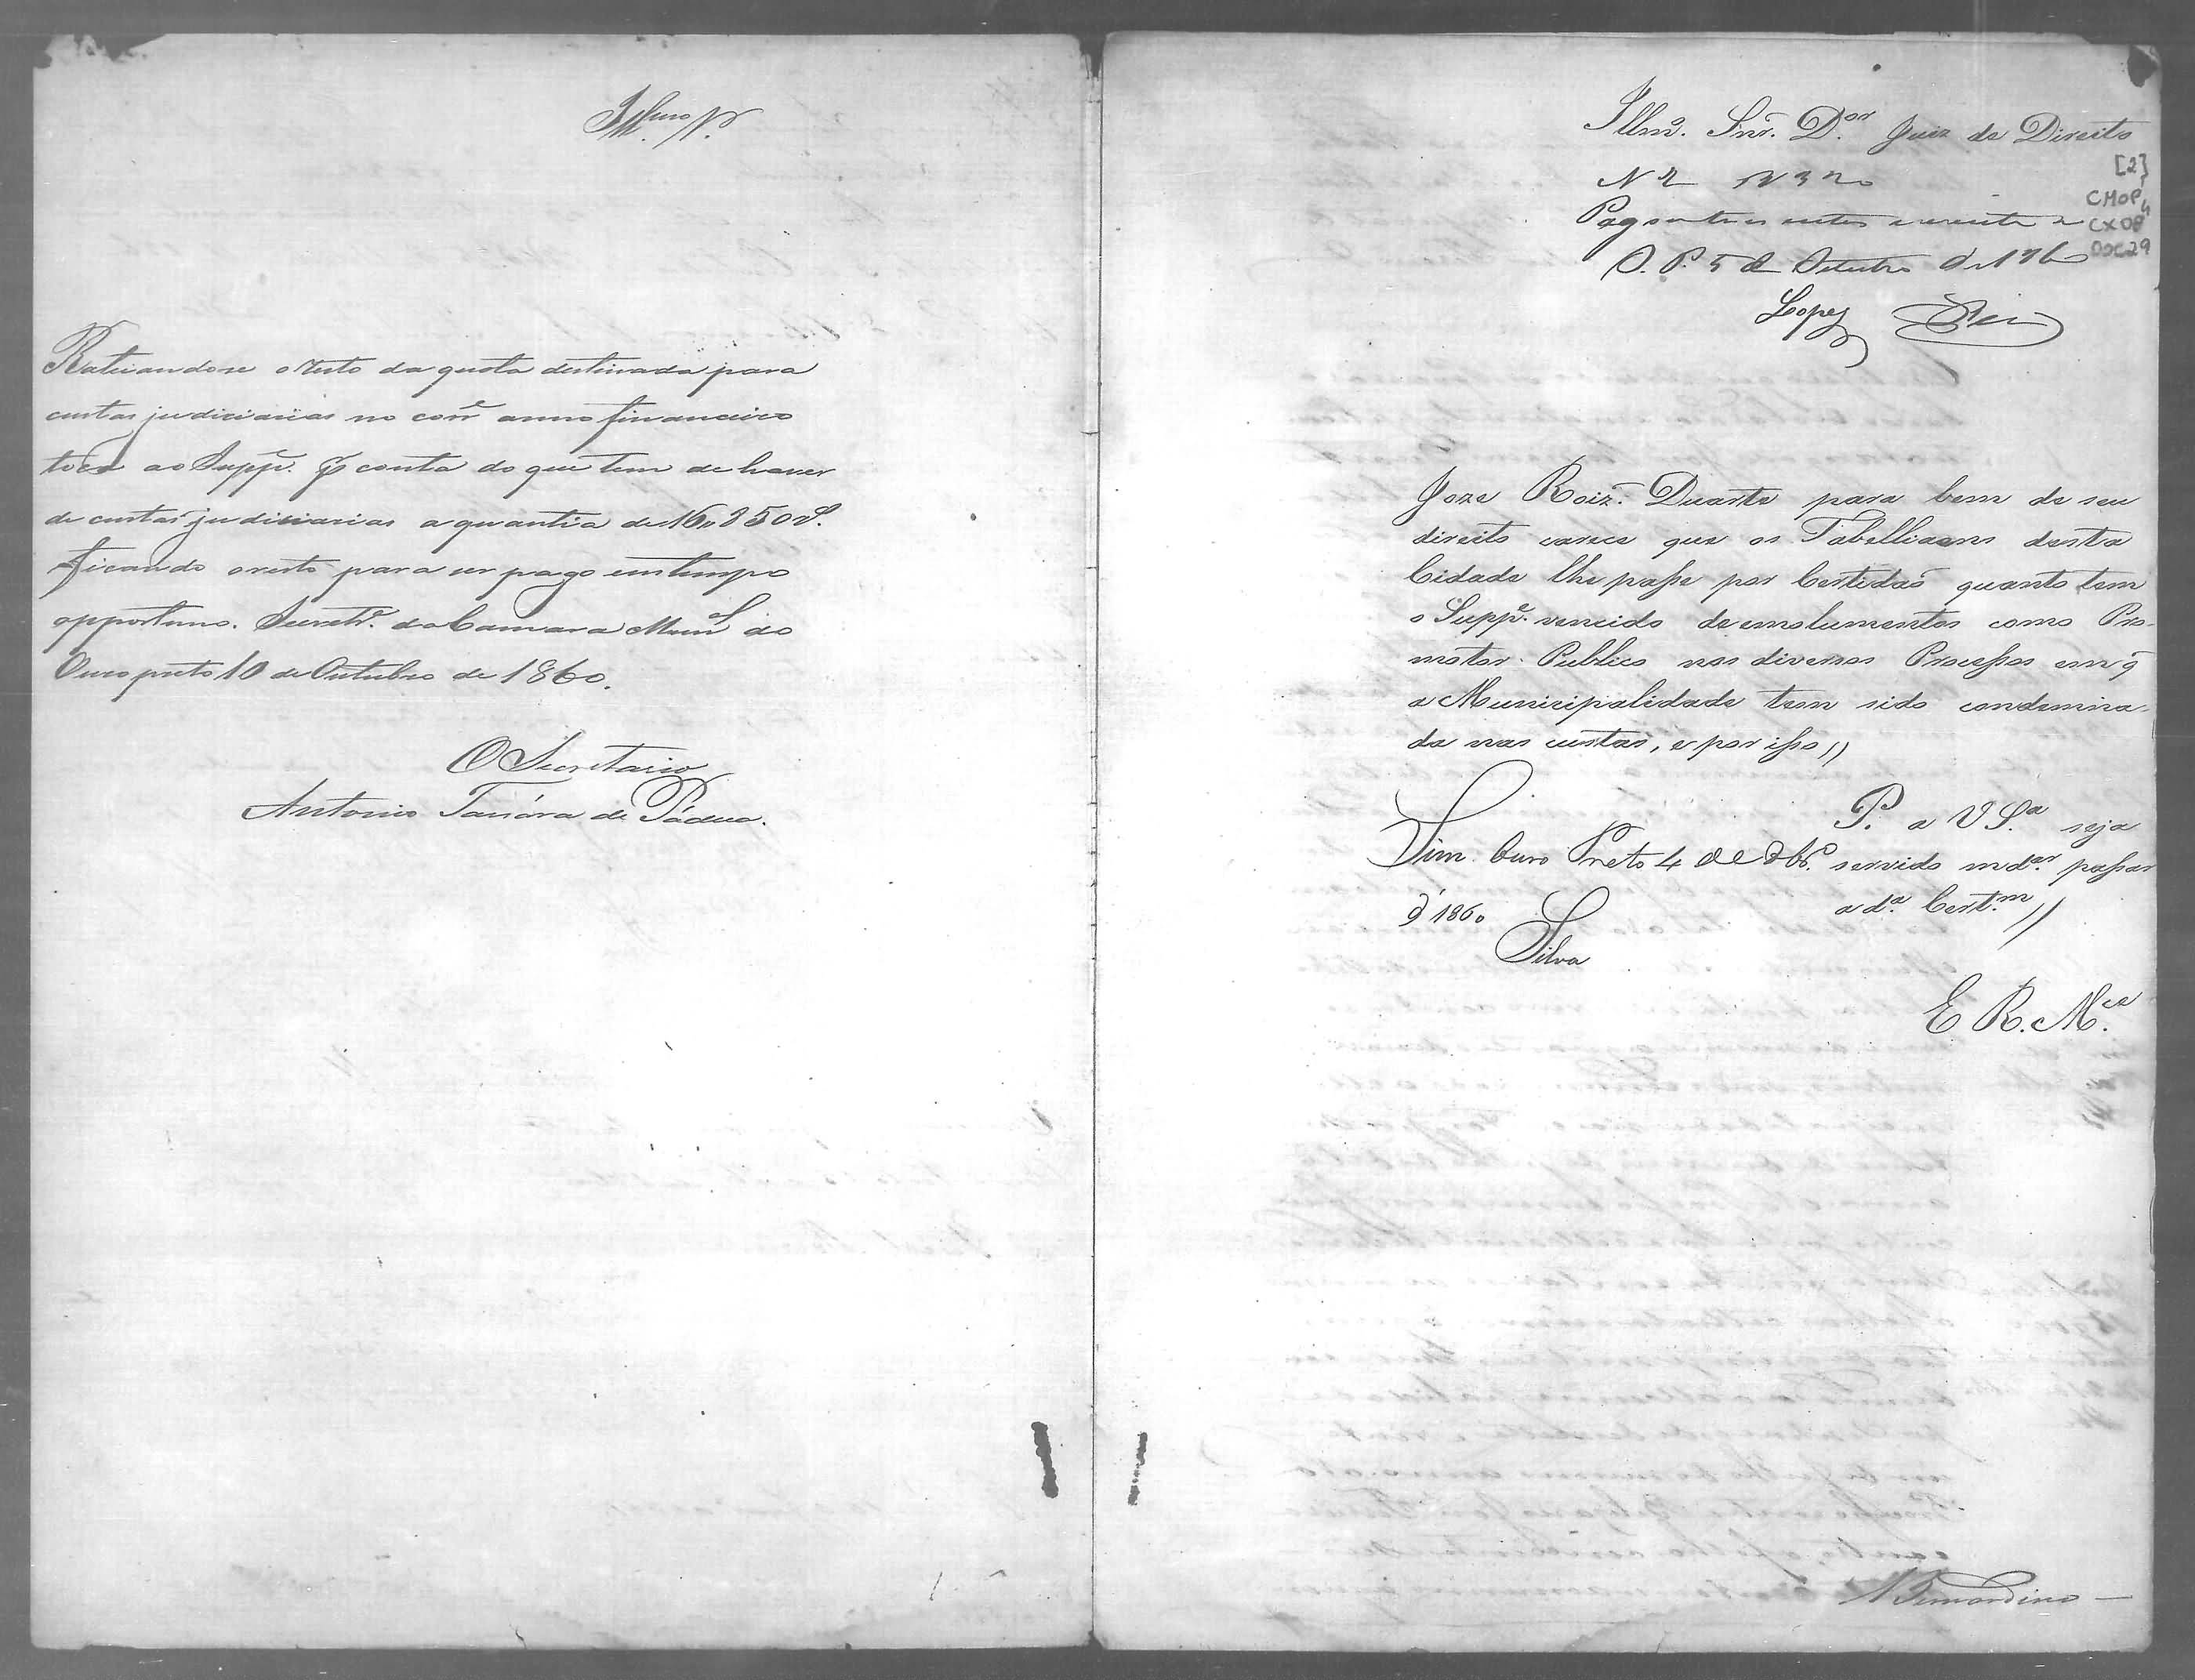 Illmos Srs.
Rateiandose o resto da quota destinada para
custas judiciarias no corre. anno financeiro
toca ao Suppe. pr. conta do que tem de haver
de custas judiciarias a quantia de 16"850rs.
ficando o resto para ser pago em tempo
opportuno. Secretra. da Camara Munal. do
Ouro preto 10 de Outubro de 1860.
O Secretario
Antonio de Pádua.
Illmo. Snr. Dor. Juiz de Direito
N 2
[2]
CMOP
CX08
DOC29
O. P. 5 de Outubro de 1860
Lopes
Joze Roiz. Duarte para bem de seu
direito carece que os Tabelliaens desta
Cidade lhe passe por Certidaõ quanto tem
o Suppe. vencido de emolumentos como Pro-
motor Publico nos diversos Processos em q̃
a Municipalidade tem sido condemna-
da nas custas, e por isso //
P. a V Sa. seja
Sim. Ouro Preto 4 de 8bro. servido mdar. passar
d' 1860 a da. Certm. //
Silva
E R. Mce.
Bernardino